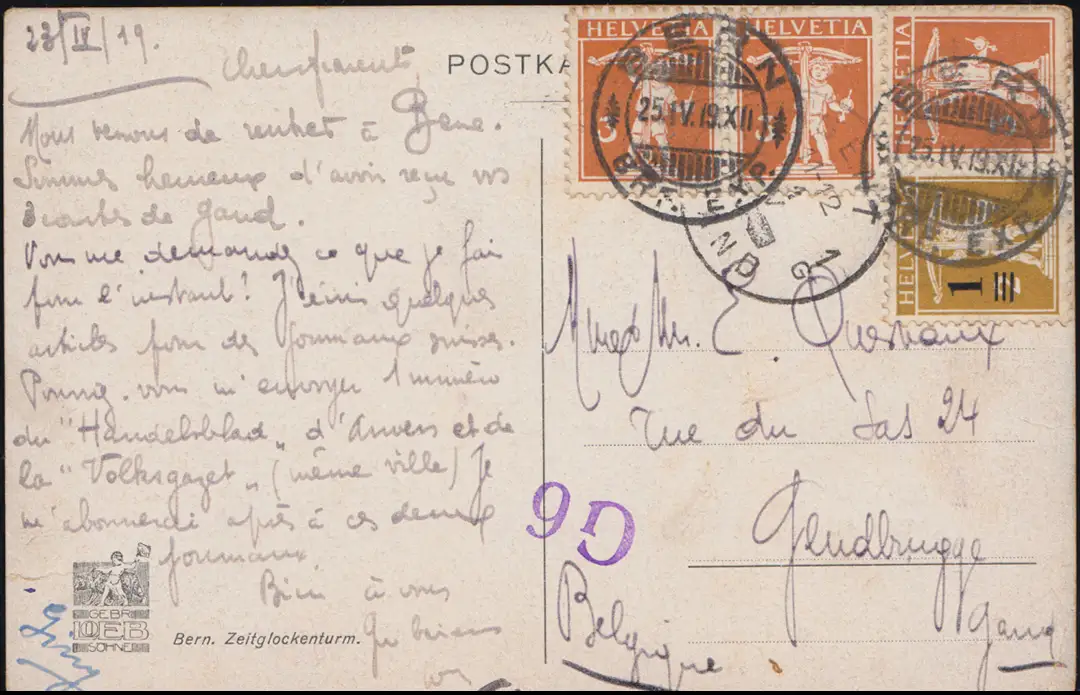 23/IV/19.
Chers parents
POSTKA
Nous venons de rentrer à Berne.
Sommes heureux d'avoir reçu vos
3 cartes de Gand.
Vous me demandez ce que je fais
pour l'instant? J'écris quelques
articles pour des journaux suisses.
Pourriez-vous m'envoyer 1 numéro
du "Handelsblad" d'Anvers et de
la "Volksgazet" (même ville) Je
m'abonnerai après à ces deux
journaux
Bien à vous
GEBR
LOEB
SÖHNE
Bern. Zeitglockenturm.
HELVETIA
HELVETIA
HELVETIA
HELVETIA
1
BERN
25.IV.19.XII
BRF. EXP.
BERN
25.IV.19.XII
BRF. EXP.
GENT
GAND
Mr E.
rue du Sas 24
Gendbrugge
Gand
Belgique
G 6